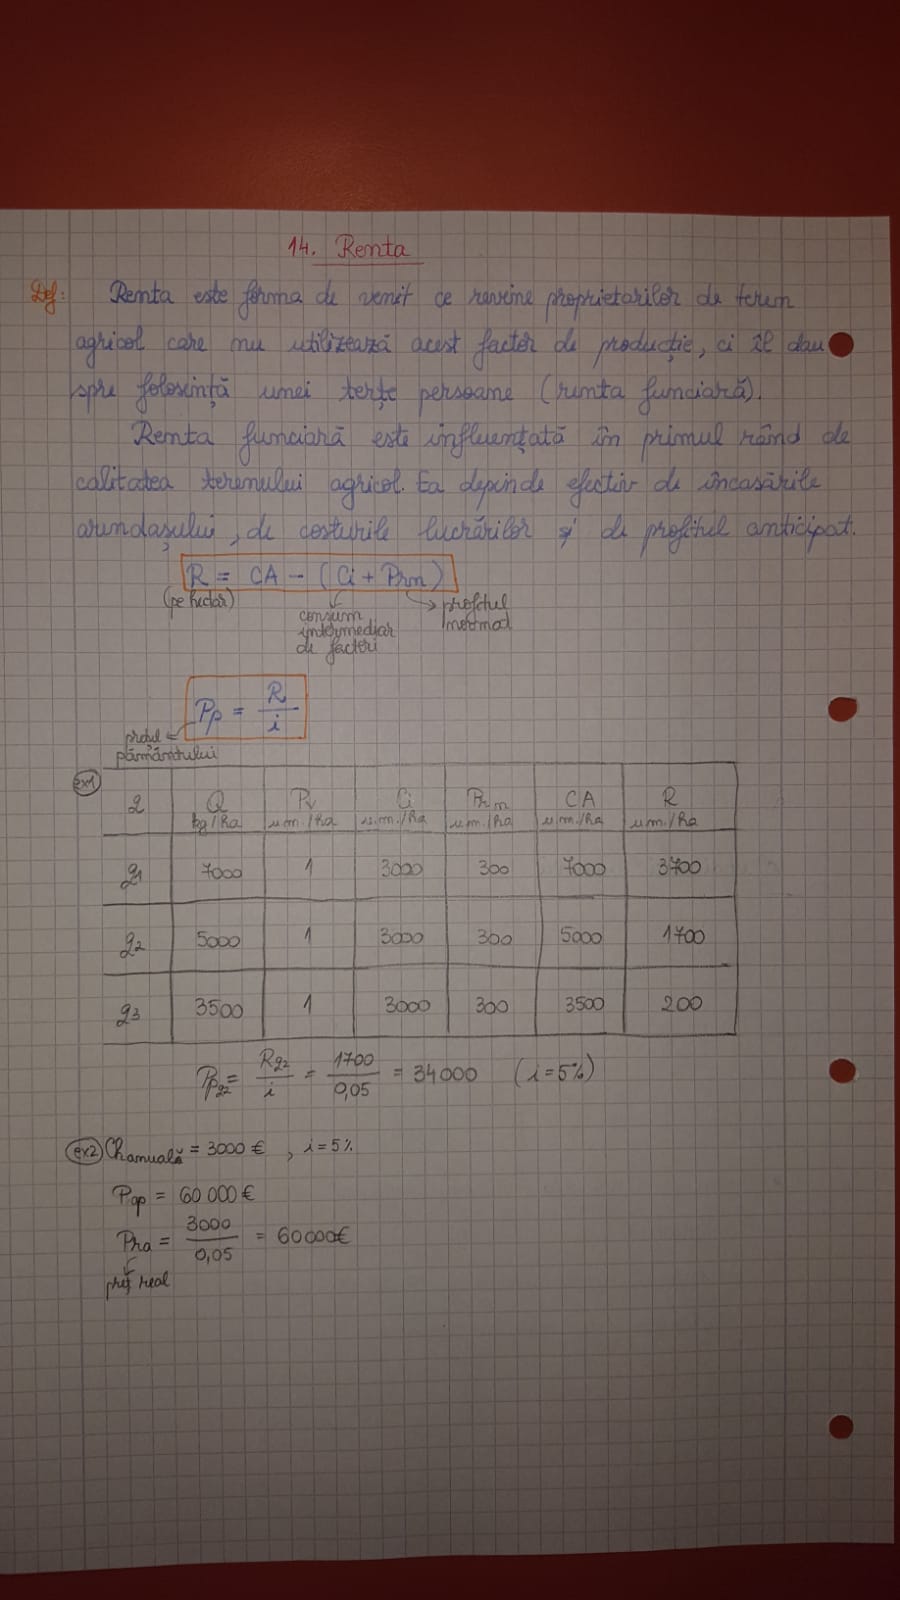 14. Renta
Def: Renta este forma de venit ce revine proprietarilor de teren
agricol care nu utilizează acest factor de producție, ci îl dau
spre folosință unei terțe persoane (renta funciară).
Renta funciară este influențată în primul rând de
calitatea terenului agricol. Ea depinde efectiv de încasările
arendașului, de costurile lucrărilor și de profitul anticipat.
R = CA - (Ci + Prm)
(pe hectar)
consum
intermediar
de factori
profitul
normal
Pp = R/i
prețul
pământului
ex1
2 | Q kg/ha | Pv u.m./ha | Ci u.m./ha | Prm u.m./ha | CA u.m./ha | R u.m./ha
21 | 7000 | 1 | 3000 | 300 | 7000 | 3700
22 | 5000 | 1 | 3000 | 300 | 5000 | 1700
23 | 3500 | 1 | 3000 | 300 | 3500 | 200
Pp22 = R22/i = 1700/0,05 = 34000 (i=5%)
ex2 Chanuală = 3000 €, i = 5%
Pop = 60 000 €
Pra = 3000/0,05 = 60000€
preț real